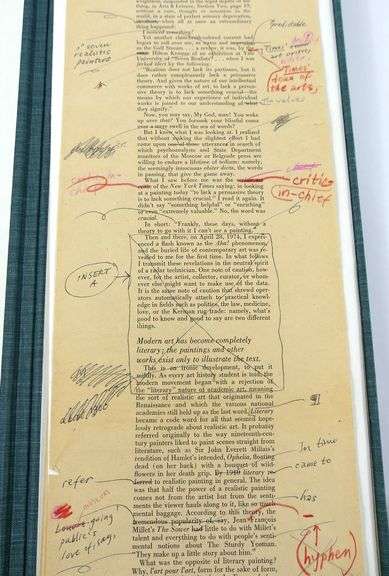 Yet another
began to roll over me
to the Gulf Stream
"Seven realists"
"Realism does not lack its partisans, but it
does rather conspicuously lack a persuasive
theory. And given the nature of our intellectual
commerce with works of art, to lack a persua-
sive theory is to lack something crucial—the
means by which our experience of individual
works is joined to our understanding of what
they signify."
Now, you may say, My God, man! You woke
up over that? You forsook your blissful coma
over a mere swell in the sea of words?
But I knew what I was looking at. I realized
that without making the slightest effort I had
come upon one of those utterances in search of
which psychoanalysts and State Department
monitors of the Moscow or Belgrade press are
willing to endure a lifetime of tedium: namely,
the seemingly innocuous obiter dicta, the words
in passing, that give the game away.
What I saw before me was the
of the New York Times saying: in looking
at a painting today "to lack a persuasive theory
is to lack something crucial." I read it again. It
didn't say "something helpful" or "enriching"
or even "extremely valuable." No, the word was
crucial.
In short: "Frankly, these days, without a
theory to go with it I can't see a painting."
Then and there, on April 28, 1974, I experi-
enced a flash known as the Aha! phenomenon,
and the buried life of contemporary art was re-
vealed to me for the first time. In what follows
I transmit these revelations in the neutral spirit
of a radar technician. One note of caution, how-
ever, for the artist, collector, curator, or whom-
ever else might want to make use of the data.
It is the same note of caution that shrewd oper-
ators automatically attach to practical knowl-
edge in fields such as politics, the law, medicine,
love, or the Kerman rug trade: namely, what's
good to know and good to say are two different
things.
INSERT
A
Modern art has become completely
literary: the paintings and other
works exist only to illustrate the text.
This is an ironic development, to put it
mildly. As every art history student is told, the
modern movement began with a rejection of
the "literary" nature of academic art, meaning
the sort of realistic art that originated in the
Renaissance and which the various national
academies still held up as the last word. Literary
became a code word for all that seemed hope-
lessly retrograde about realistic art. It probably
referred originally to the way nineteenth-cen-
tury painters liked to paint scenes straight from
literature, such as Sir John Everett Millais's
rendition of Hamlet's intended, Ophelia, floating
dead (on her back) with a bouquet of wild-
flowers in her death grip. literary re-
ferred to realistic painting in general. The idea
was that half the power of a realistic painting
comes not from the artist but from the senti-
ments the viewer hauls along to it, like so much
mental baggage. According to this theory, the
tremendous popularity of, say, Jean François
Millet's The Sower had little to do with Millet's
talent and everything to do with people's senti-
mental notions about The Sturdy Yeoman.
They make up a little story about him."
What was the opposite of literary painting?
Why, l'art pour l'art, form for the sake of form,
7 Seven
realists
painters
Predictable
Times
dean of
the arts,
critic
in-chief
¶
In time
came to
has
refer
museum going
public's
love of, say,
hyphen